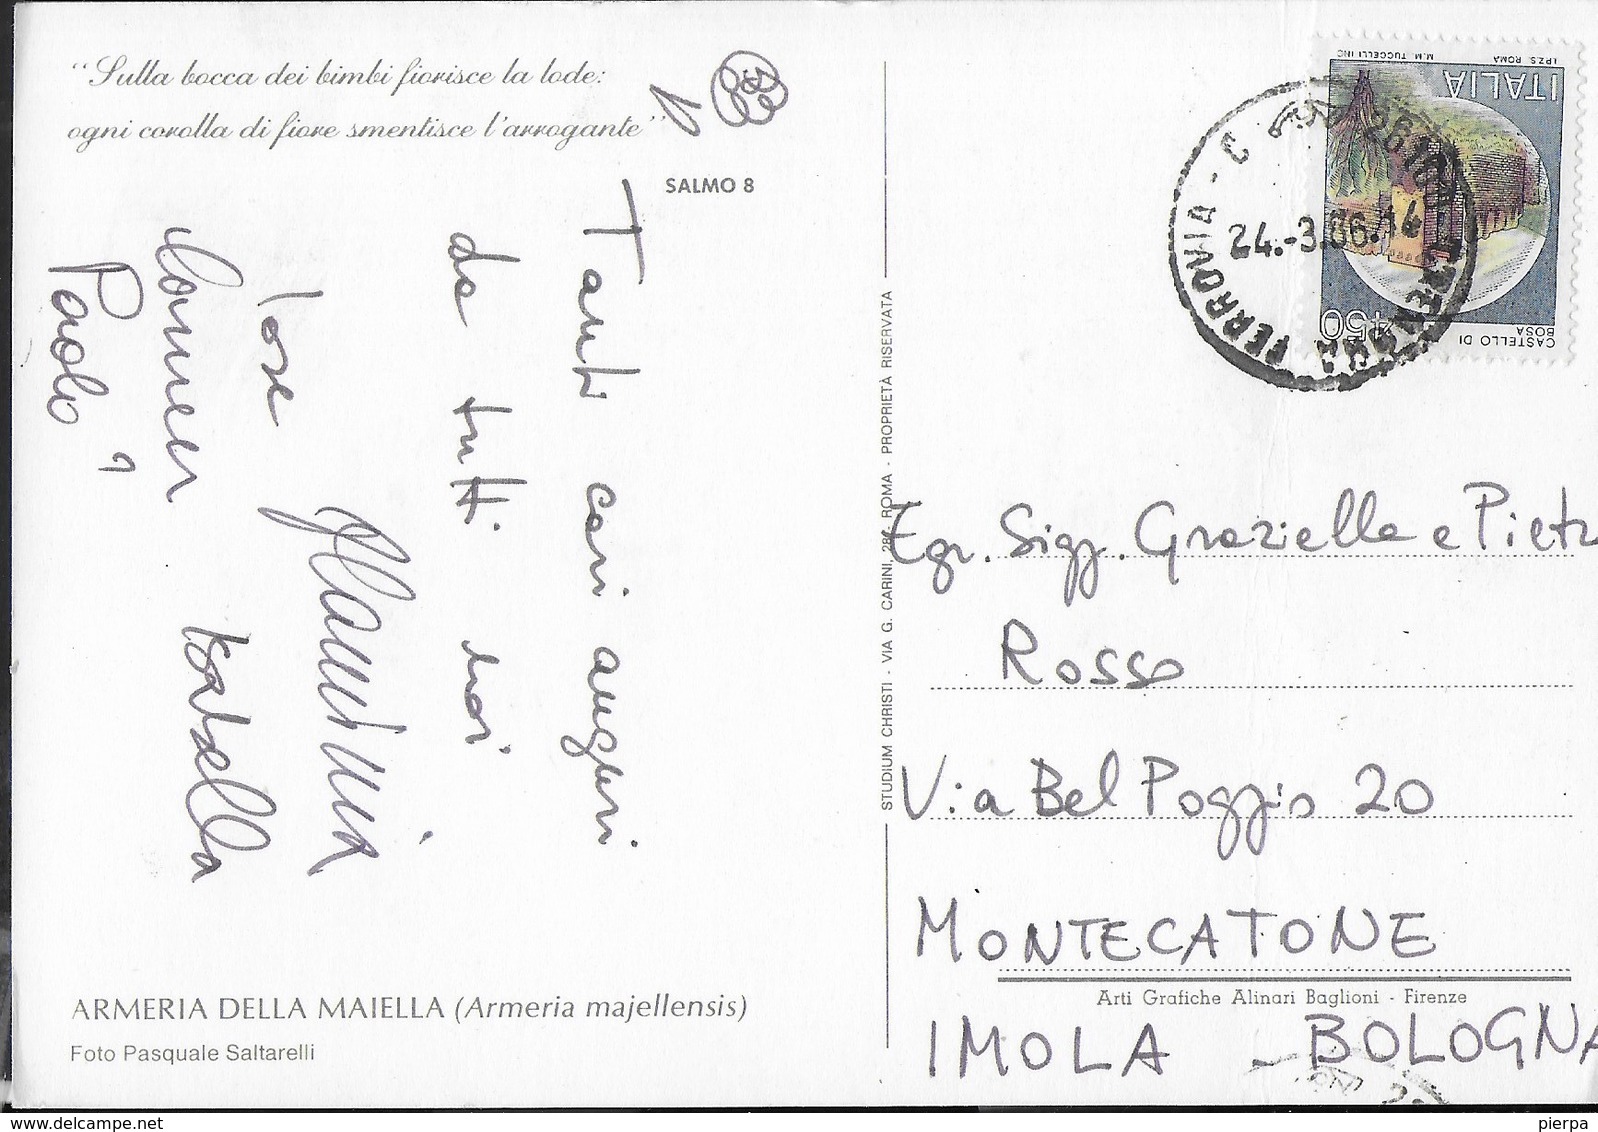 “Sulla bocca dei bimbi fiorisce la lode:
ogni corolla di fiore smentisce l'arrogante”
SALMO 8
Tanti cari auguri
da tutti noi
Iose
Carmen
Paolo
Isabella
ARMERIA DELLA MAIELLA (Armeria majellensis)
Foto Pasquale Saltarelli
STUDIUM CHRISTI - VIA G. CARINI, 28 - ROMA - PROPRIETÀ RISERVATA
I.P.Z.S. ROMA
M.M. TUCCELLI INC.
ITALIA
450
CASTELLO DI
BOSA
FERROVIA - C
24.-3.86.14
Egr. Sigg. Graziella e Pietr
Rosso
Via Bel Poggio 20
MONTECATONE
Arti Grafiche Alinari Baglioni - Firenze
IMOLA - BOLOGNA
pierpa